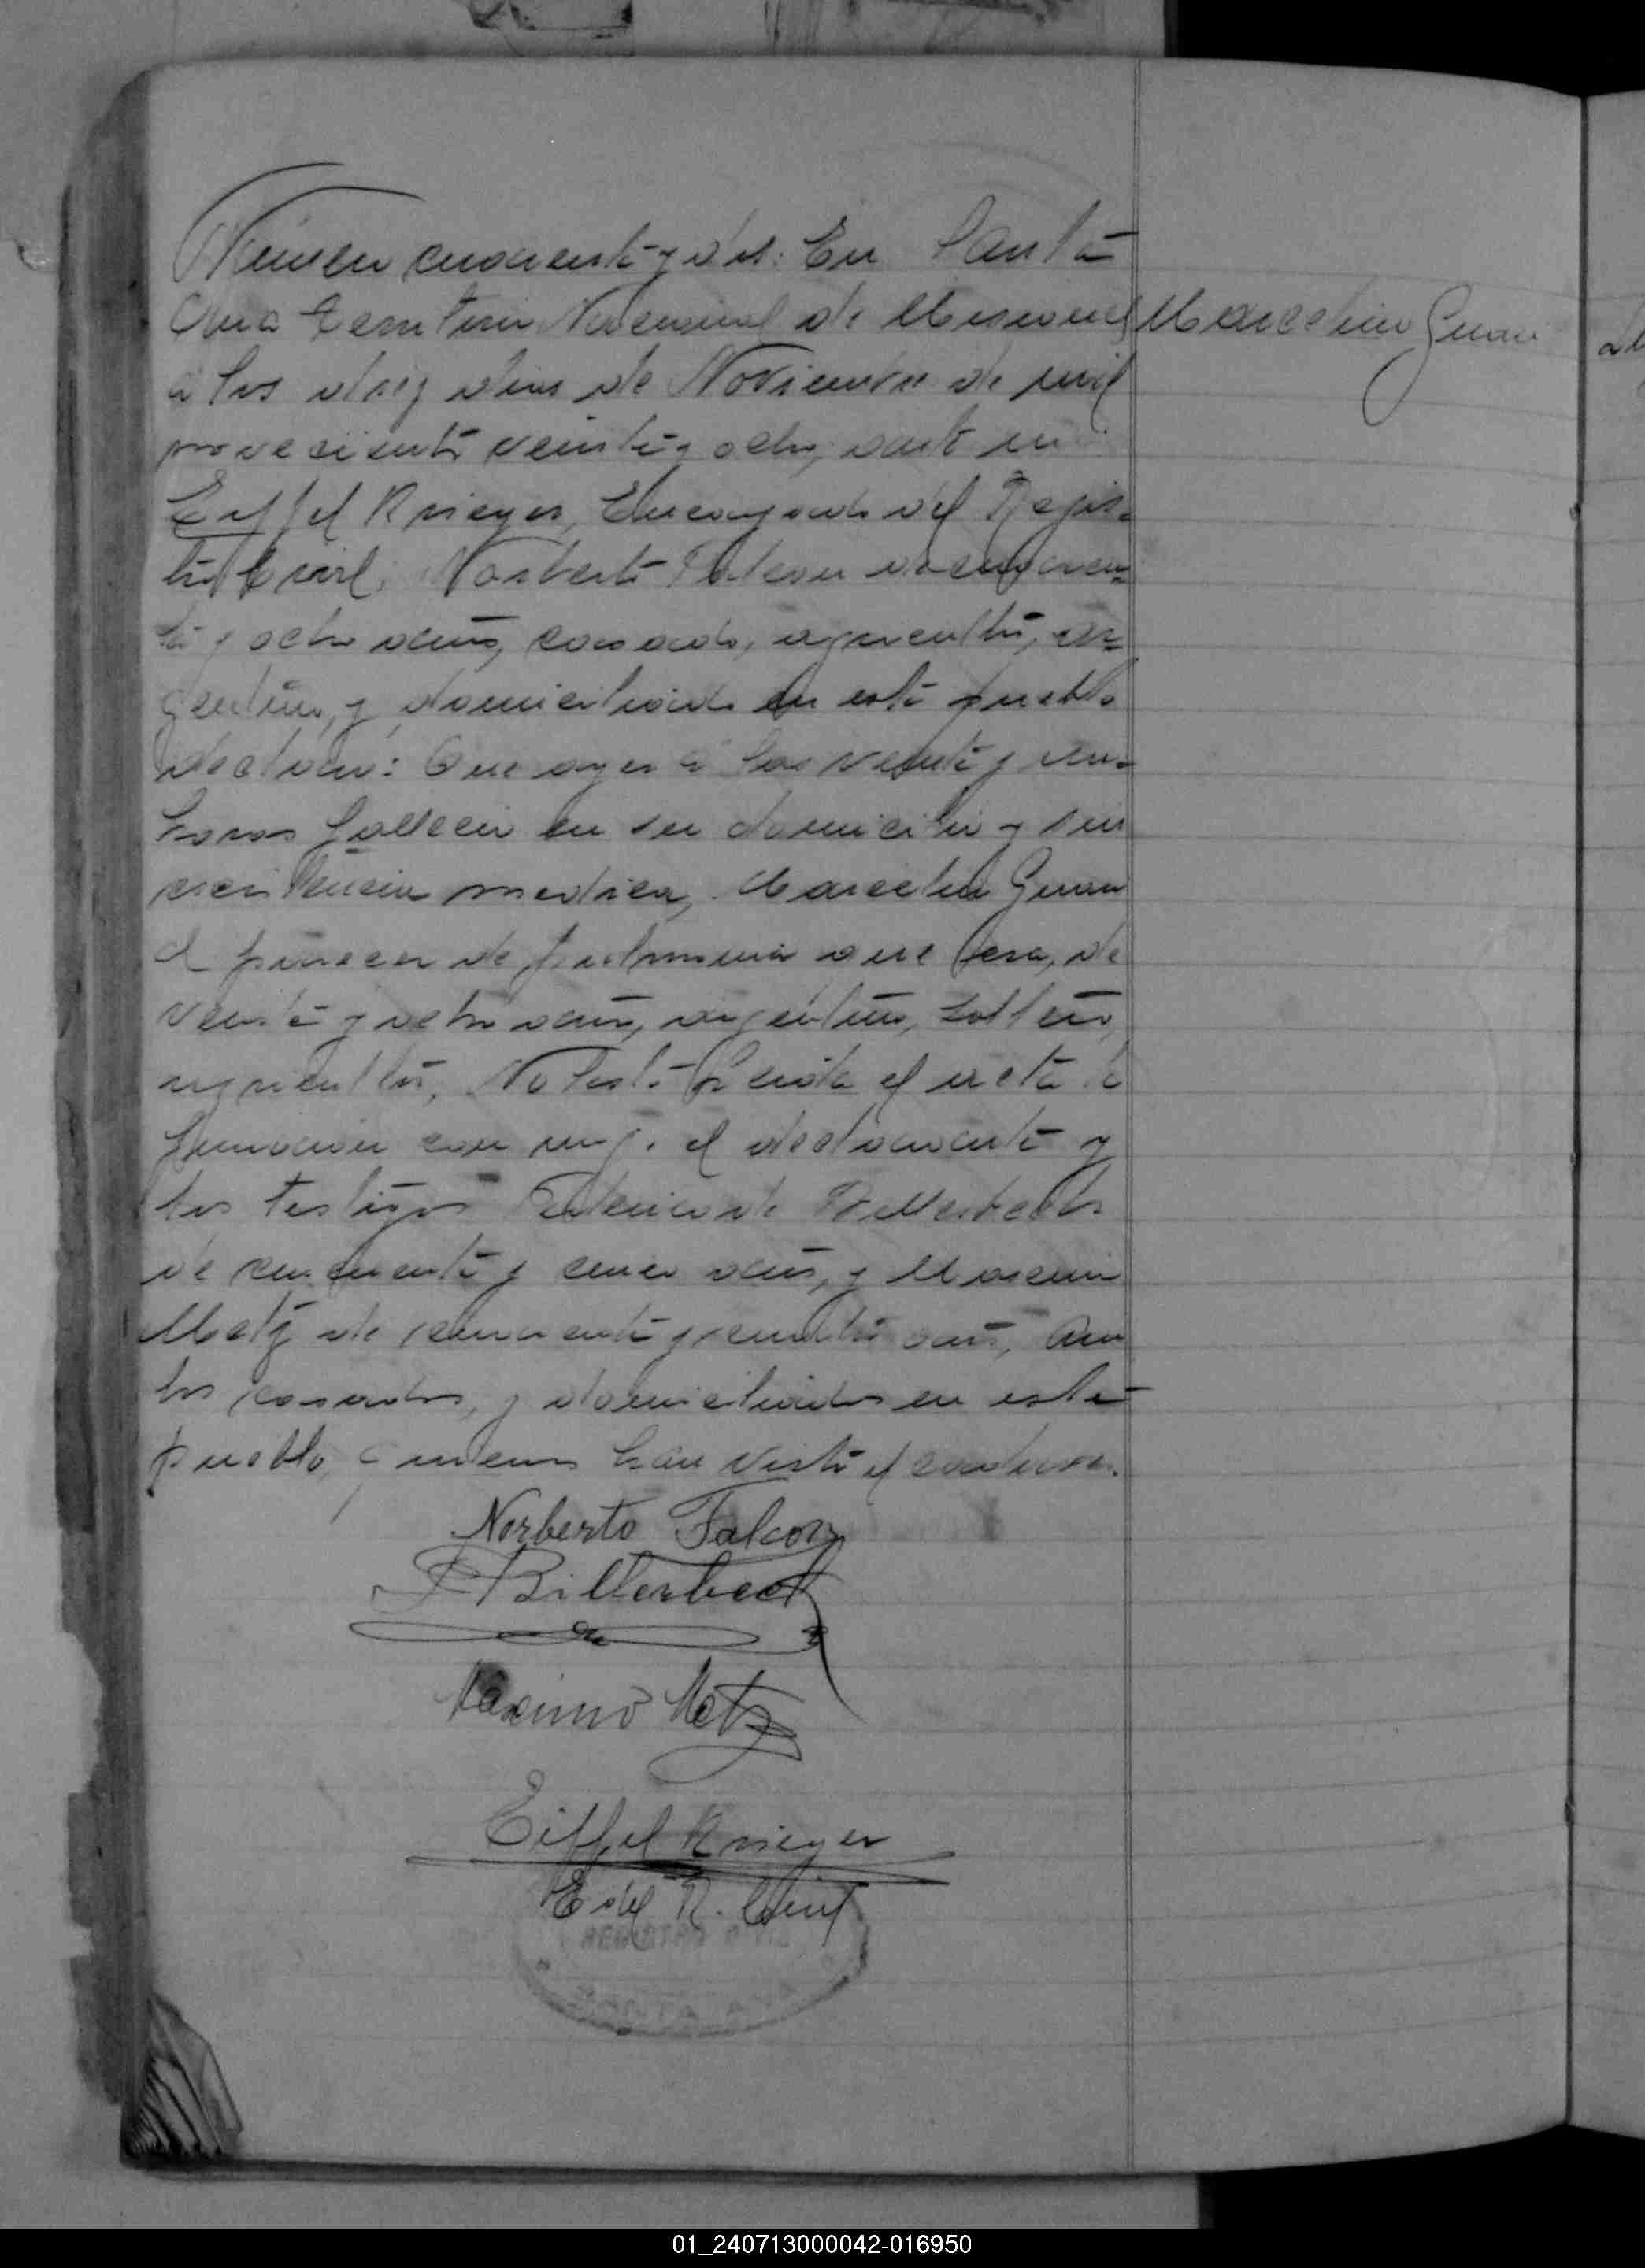 Número cuarenta y dos: En Santa
Ana Territorio Nacional de Misiones
Marcelino
á los diez dias de Noviembre de mil
novecientos veinte y ocho, ante mi
Eiffel Krieger, Encargado del Regis-
tro Civil, Norberto Falcon de cuaren-
ta y ocho años, casado, agricultor, ar-
gentino, y domiciliado en este pueblo
declaró: Que ayer á las veinte y una
horas falleció en su domicilio y sin
asistencia medica, Marcelino
al parecer de
veinte y ocho años, argentino, soltero,
agricultor, No
firmaron con migo el declarante y
los testigos Federico de Billerbeck
de cincuenta y cinco años, y Maximo
Metz de cuarenta y cuatro años, am
bos casados, y domiciliados en este
pueblo, quienes han visto el cadaver.
Norberto Falcon
F Billerbeck
Maximo Metz
Eiffel Krieger
E. del R. Civil
REGISTRO
01_240713000042-016950